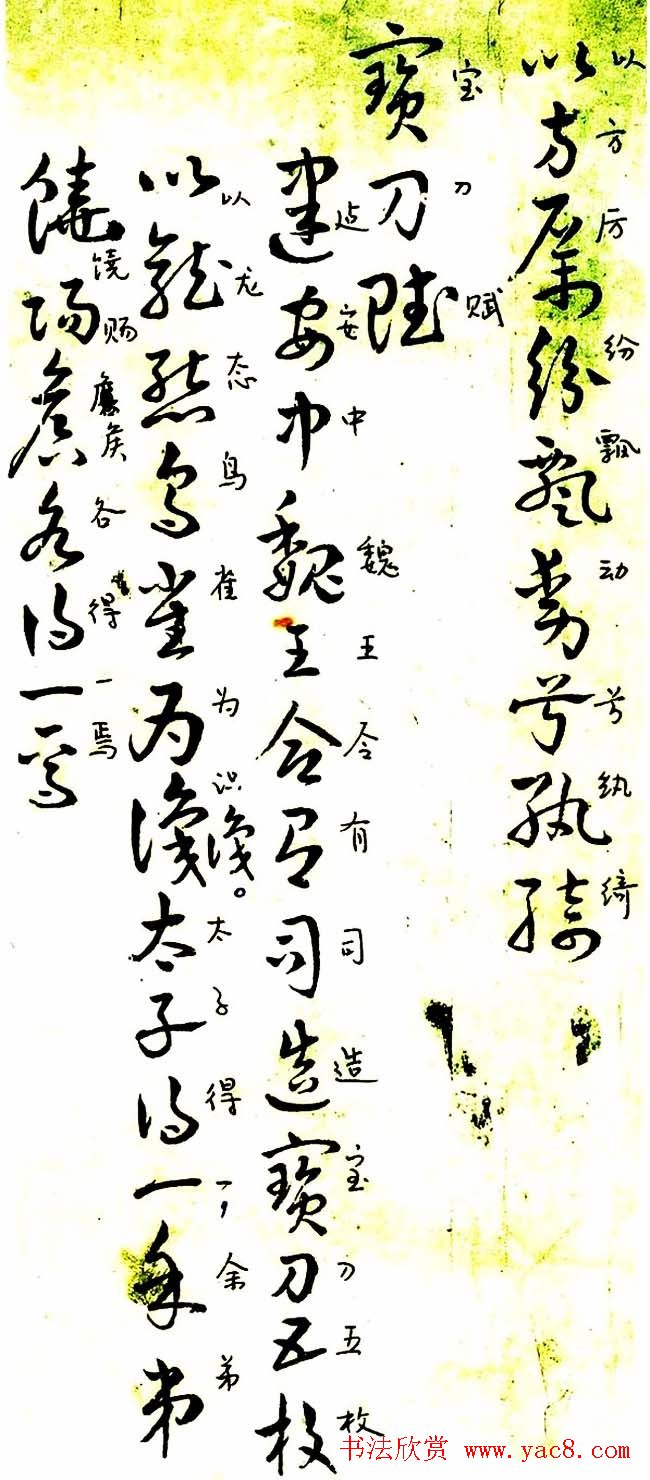 以方厲紛飄動兮紈綺
以方厉纷飘动兮纨绮
寶刀賦
宝刀赋
建安中魏王令有司造寶刀五枚
安中魏王令有司造宝刀五枚
以龍態鳥雀為識太子得一余弟
以龙态鸟雀为识。太子得一,余弟
饒各得一焉
饶赐侯各得一焉
书法欣赏 www.yac8.com